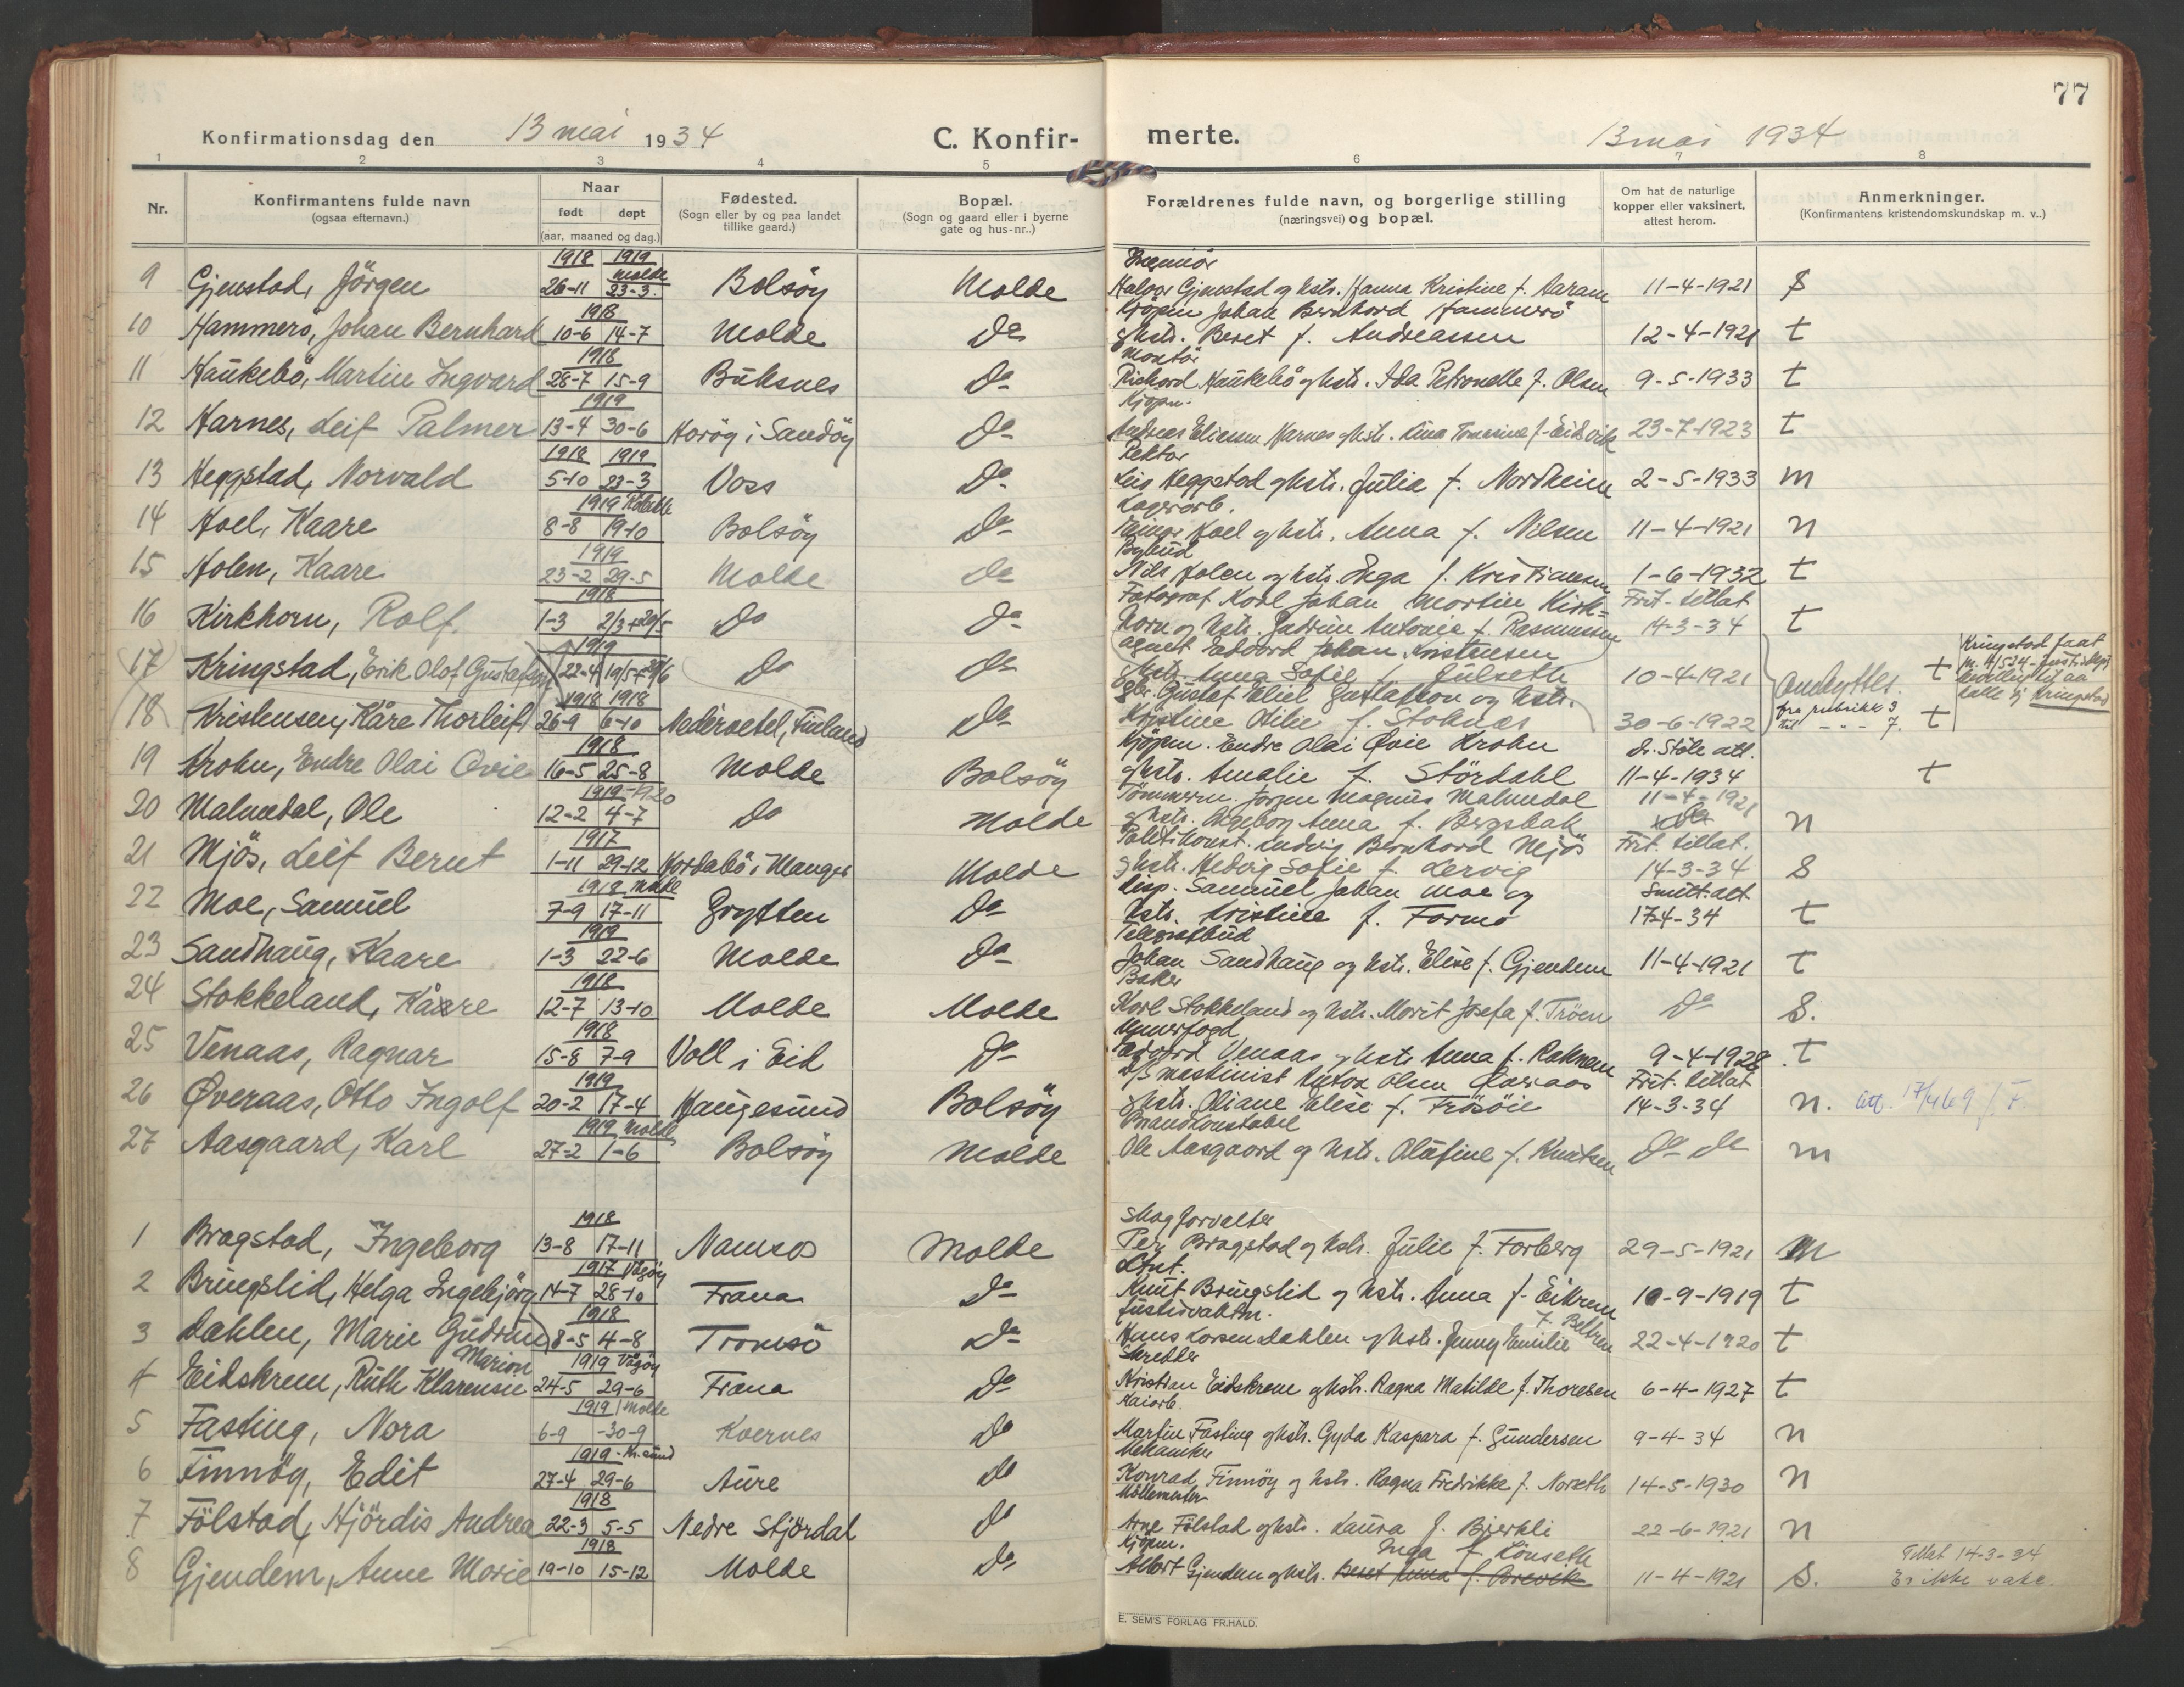 77
Konfirmationsdag den 13 mai 1934 C. Konfir-merte. 13 mai 1934
1 2 3 4 5 6 7 8
Nr. Konfirmantens fulde navn (ogsaa efternavn.) Naar født døpt (aar, maaned og dag.) Fødested. (Sogn eller by og paa landet tillike gaard.) Bopæl. (Sogn og gaard eller i byerne gate og hus-nr..) Forældrenes fulde navn, og borgerlige stilling (næringsvei) og bopæl. Om hat de naturlige kopper eller vaksinert, attest herom. Anmerkninger. (Konfirmantens kristendomskundskap m. v..)
1918 1919 Molde Ingeniør
9 Gjenstad, Jörgen 26-11 23-3. Bolsöy Molde Halvor Gjenstad og hstr. Hanna Kristine f. Aaram 11-4-1921 S
1918 Kjöpm Johan Bernhard Hammerö
10 Hammerö, Johan Bernhard 10-6 14-7 Molde Do ghstr. Beret f. Andreassen 12-4-1921 t
1918 Montör
11 Haukebö, Martin Ingvard 28-7 15-9 Buksnes Do Rickard Haukebö ghstr. Ida Petronelle f. Olsen 9-5-1933 t
1919 Kjöpm.
12 Harnes, Leif Palmer 13-4 30-6 Haröy i Sandöy Do Andreas Eliassen Harnes ghstr. Lina Tomasine f. Eidsvik 23-7-1923 t
1918 1919 Rektor
13 Heggstad, Norvald 5-10 23-3 Voss Do Leiv Heggstad ghstr. Julia f. Nordheim 2-5-1933 m
1919 Lagerarb.
14 Hoel, Kaare 8-8 19-10 Bolsöy Do Einar Hoel ghstr. Anna f. Nilsen 11-4-1921 n
1919 Bybud
15 Holen, Kaare 23-2 29-5 Molde Do Nils Holen og hstr. Inga f. Kristiansen 1-6-1932 t
1918 Fotograf Karl Johan Martin Kirk= Frit. tillat
16 Kirkhorn, Rolf. 1-3 2/3+20/5 Do Do horn og hstr. Gudrun Antonie f. Rasmussen 14-3-34 t
1919 agent Edvard Johan Kristensen
17 Kringstad, Erik Olof Gustafson 22-4 19/5+29/6 Do Do ghstr. Anna Sofie f. Julseth 10-4-1921 t
Kringstad faat
ombyttes.
fra rubrikk 3
til - - - 7.
1918 1918 Gustaf Eliel Gustafson og hstr.
18 Kristensen, Kåre Thorleif 26-9 6-10 Nedervetel, Finland Do Kristine Otilie f. Stoknes 30-6-1922 t
1918 Kjöpm. Endre Olai Øvie Krohn dr. Stöle att.
19 Krohn, Endre Olai Øvie 16-5 25-8 Molde Bolsöy ghstr. Amalie f. Stördahl 11-4-1934 t
1919-1920 Tömmerm. Jörgen Magnus Malmedal 11-4-1921
20 Malmedal, Ole 12-2 4-7 Do Molde ghstr. Ingeborg Anna f. Bergsbak n
1917 Politikonst. Ludvig Bernhard Mjös Frit. tillat.
21 Mjös, Leif Bernt 1-11 29-12 Hordabö i Manger Molde ghstr. Hedvig Sofie f. Lervig 14-3-34 S
1918 Molde Disp. Samuel Johan Moe og Smitt: att
22 Moe, Samuel 7-9 17-11 Grytten Do hstr. Kristine f. Formo 17-4-34 t
1919 Telegrafbud
23 Sandhaug, Kaare 1-3 22-6 Molde Do Johan Sandhaug og hstr. Elise f. Gjendem 11-4-1921 t
1918 Baker
24 Stokkeland, Kåare 12-7 13-10 Molde Molde Karl Stokkeland og hstr. Marit Josefa f. Tröen Do S.
1918
25 Venaas, Ragnar 15-8 7-9 Voll i Eid Do Edvard Venaas ghstr Anna f. Raknem 9-4-1928 t
1919 D/S maskinist Anton Olsen Øveraas Frit. tillat
26 Øveraas, Otto Ingolf 20-2 17-4 Haugesund Bolsöy ghstr. Oliane Elise f. Frösöie 14-3-34 n. att. 17/4 69 f. F.
1919 Molde Brandkonstabel
27 Aasgaard, Karl 27-2 1-6 Bolsöy Molde Ole Aasgaard og hstr. Olufine f. Knutsen Do do m
1918 Skogforvalter
1 Bragstad, Ingeborg 13-8 17-11 Namsos Molde Per Bragstad og hstr. Julie f. Forberg 29-5-1921 M
1917 Vågöy
2 Bringslid, Helga Ingebjörg 14-7 28-10 Fræna Do Knut Bringslid og hstr. Anna f. Eikrem 10-9-1919 t
1918 Justisvaktm. f. Beltren
3 Dahlen, Marie Gudrun 8-5 4-8 Tromsö Do Hans Larsen Dahlen ghstr. Jenny Emilie 22-4-1920 t
Marion 1919 Vågöy Skredder
4 Eidskrem, Ruth Klarensie 24-5 29-6 Fræna Do Kristian Eidskrem ghstr. Ragna Matilde f. Thoresen 6-4-1927 t
1919 Molde Kaiarb.
5 Fasting, Nora 6-9 -30-9 Kvernes Do Martin Fasting ghstr. Gyda Kaspara f. Gundersen 9-4-34 n
1919 - Kr.sund Mekaniker
6 Finnöy, Edit 27-4 29-6 Aure Do Konrad Finnöy og hstr. Ragna Fredrikke f. Norseth 14-5-1930 n
1918 Möllemester
7 Fölstad, Hjördis Andrea 22-3 5-5 Nedre Stjördal Do Arne Fölstad ghstr. Laura f. Bjerkli 22-6-1921 n
1918 Kjöpm. Inga f. Lönseth Tillat 14-3-34
8 Gjendem, Anne Marie 19-10 15-12 Molde Do Albert Gjendem ghstr. Beret Anna f. Orevik 11-4-1921 S. Er ikke vaks.
E. SEM'S FORLAG FR.HALD.